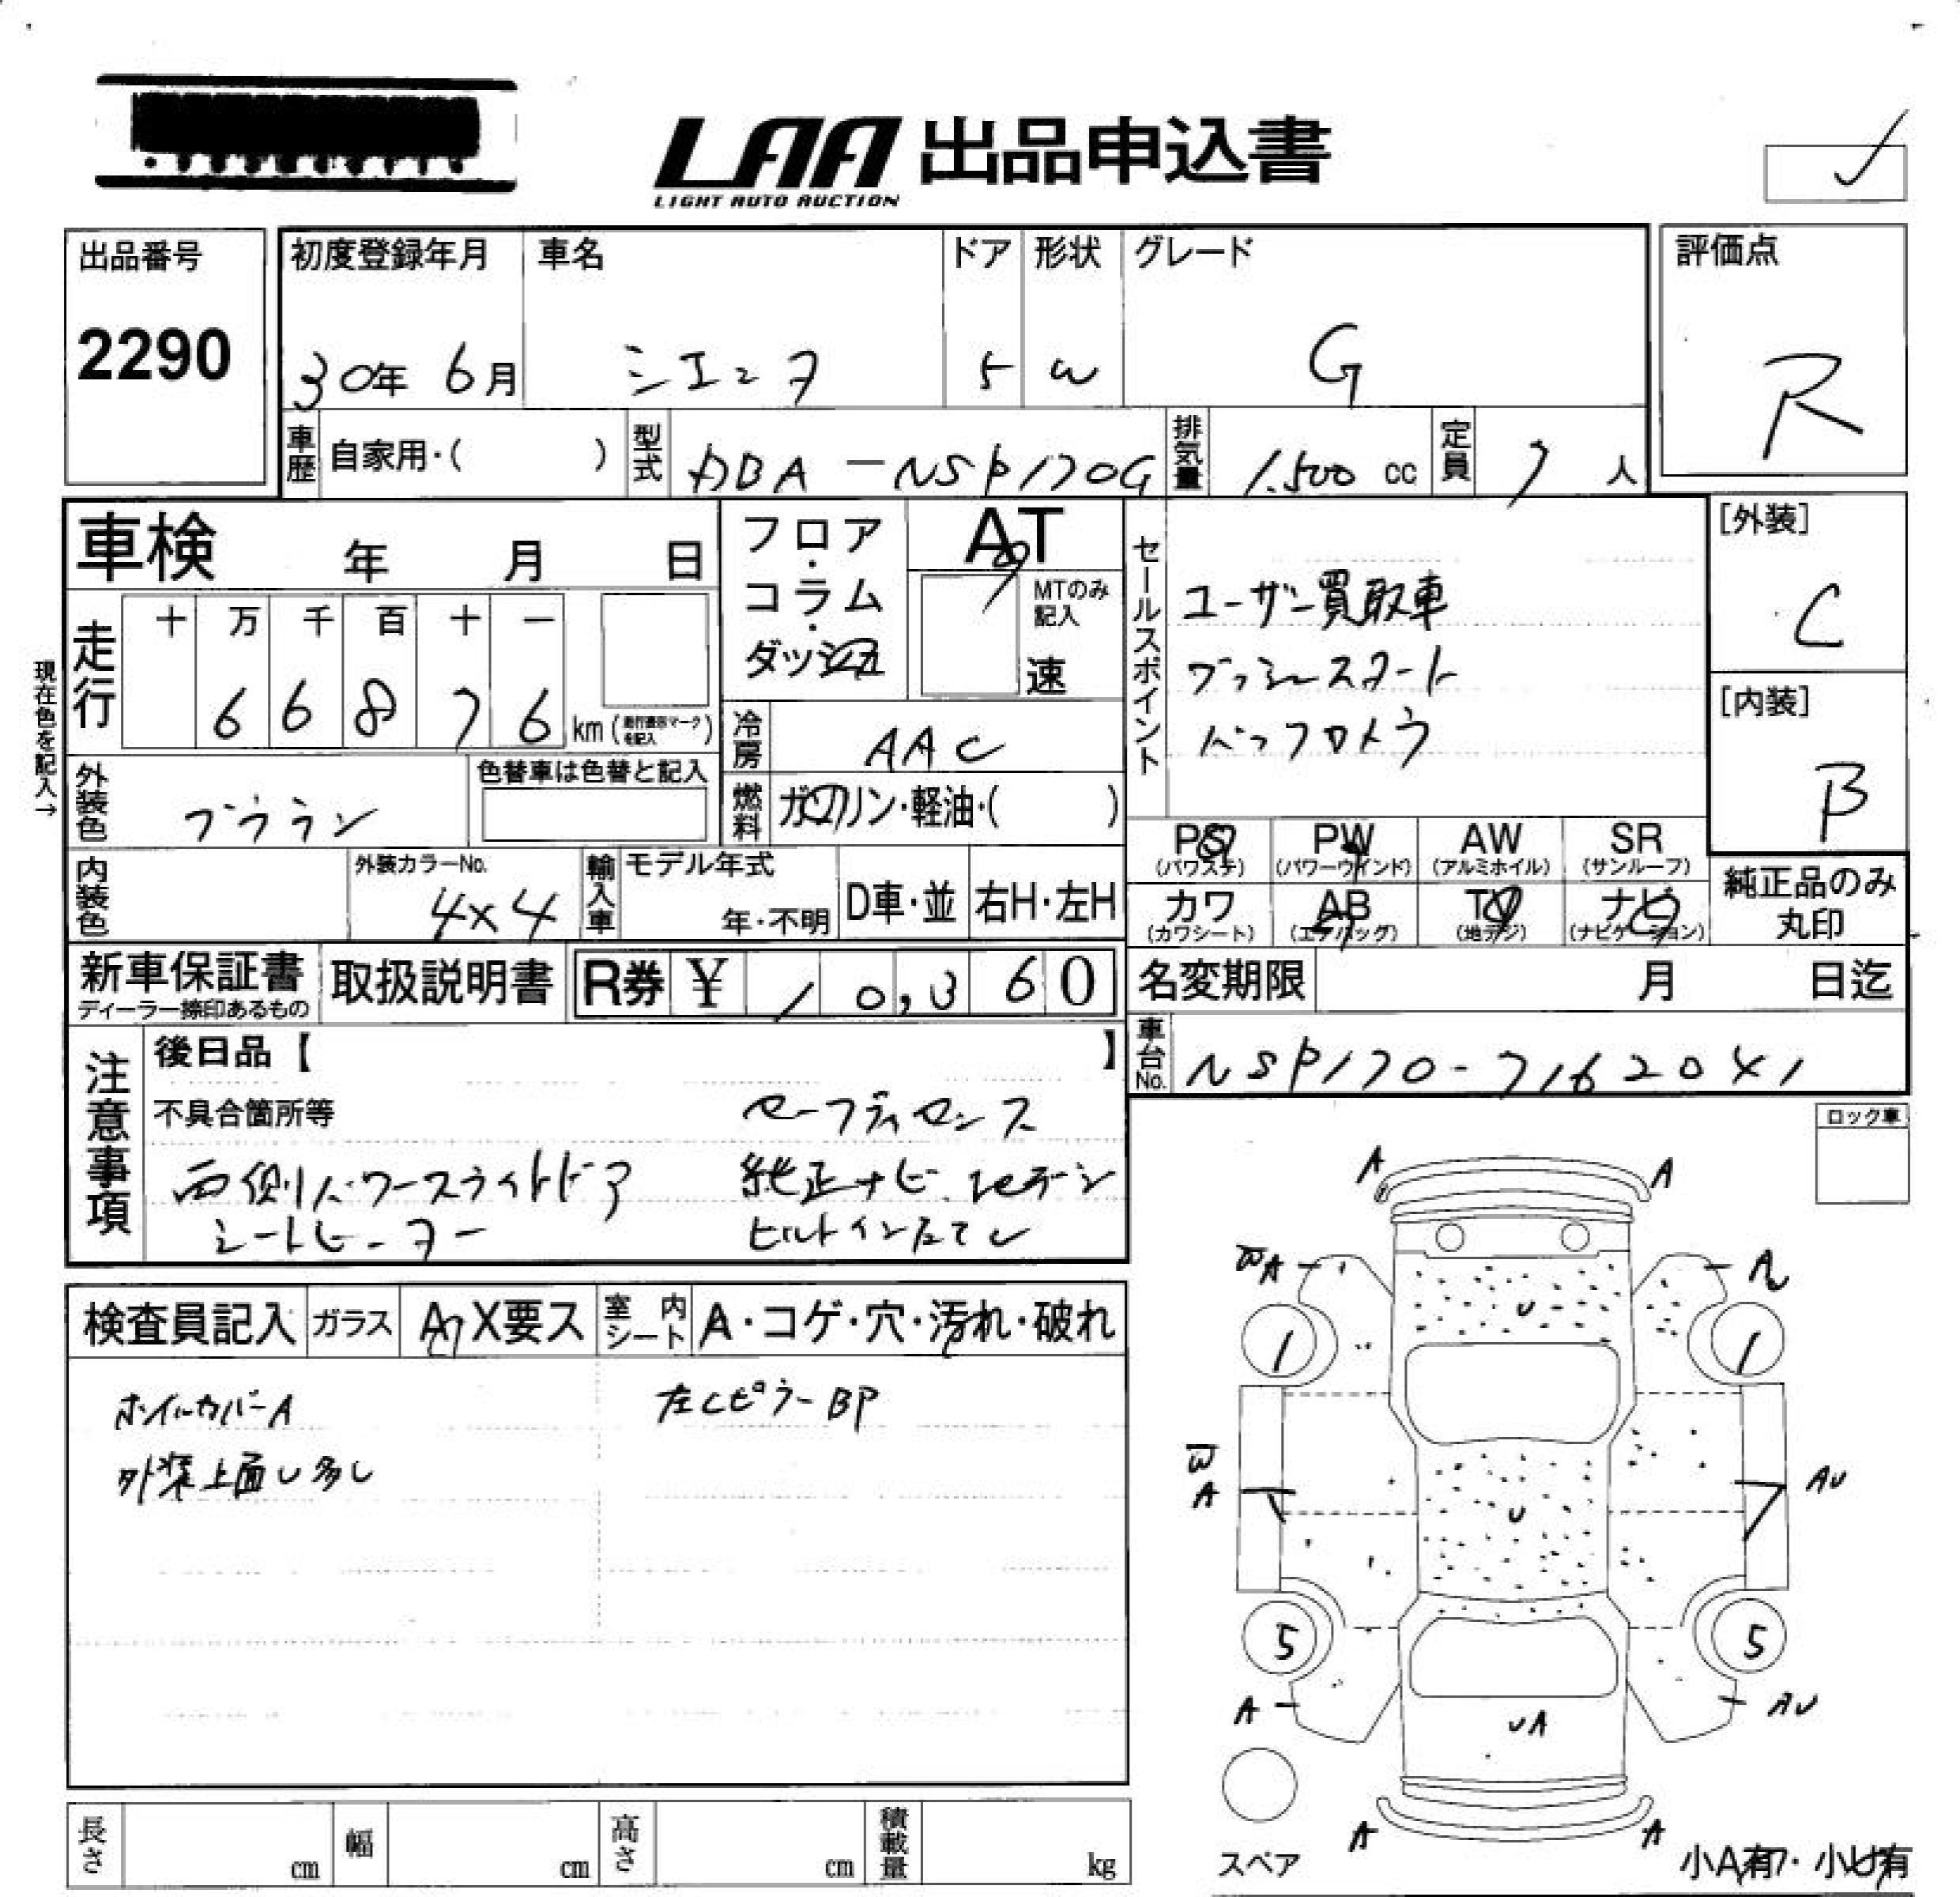 LAA 出品申込書
LIGHT AUTO AUCTION
出品番号
2290
初度登録年月
30年 6月
車名
シエンタ
ドア
5
形状
W
グレード
G
評価点
R
車歴
自家用・( )
型式
DBA-NSP170G
排気量
1.500 cc
定員
7 人
車検 年 月 日
フロア・コラム・ダッシュ
AT
MTのみ記入
速
セールスポイント
ユーザー買取車
プッシュスタート
バックカメラ
[外装]
C
[内装]
B
現在色を記入→
走行
十 万 千 百 十 一
6 6 8 7 6 km (走行表示マークを記入)
冷房
AAC
外装色
ブラウン
色替車は色替と記入
燃料
ガソリン・軽油・( )
PS (パワステ) PW (パワーウインド) AW (アルミホイル) SR (サンルーフ)
カワ (カワシート) AB (エアバッグ) TV (地デジ) ナビ (ナビゲーション)
純正品のみ丸印
内装色
外装カラーNo.
4X4
輸入車
モデル年式
年・不明
D車・並
右H・左H
新車保証書
ディーラー捺印あるもの
取扱説明書
R券 ¥ 10,360
名変期限 月 日迄
車台No.
NSP170-7162041
注意事項
後日品【 】
不具合箇所等
セーフティセンス
両側パワースライドドア
純正ナビ
シートヒーター
ロック車
検査員記入
ガラス
A・X要ス
室内シート
A・コゲ・穴・汚れ・破れ
ホイルカバーA
左CピラーBP
外装上面U多し
A A
WA A
U
1 1
W
A
U
AU
5 5
A AU
UA
A A
スペア
小A有・小U有
長さ cm
幅 cm
高さ cm
積載量 kg